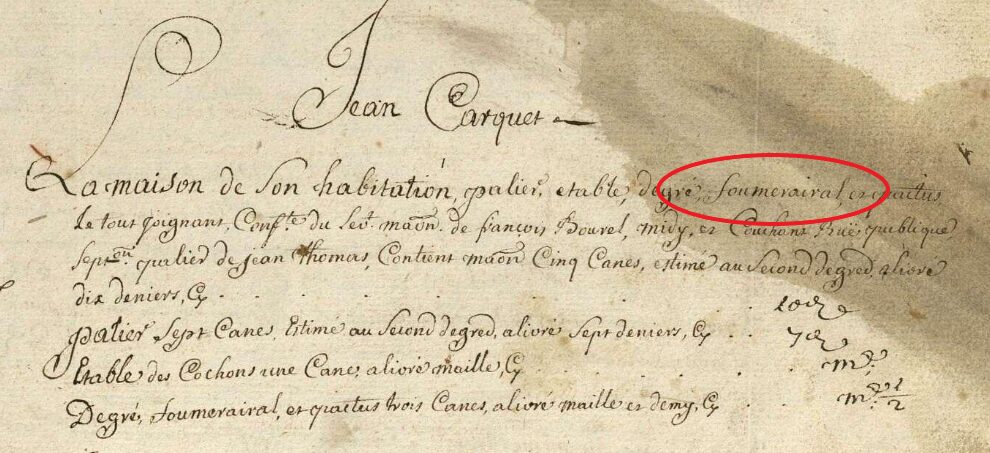 Jean Carquet
La maison de Son habitation, palier, etable, degré, foumerairal, et pactus
le tout joignant, Conf.te du Le.t maon. de françois Bourel, midy, et Couchant Rue, publique
Sept.on palier de Jean Thomas, Contient maon Cinq Canes, estimé au Second degred, alivré
dix deniers, Cy
palier Sept Canes, Estimé au Second degred, alivré Sept deniers, Cy
Etable des Cochons une Cane, alivré maille, Cy
Degré, foumerairal, et pactus trois Canes, alivré maille et demy, Cy